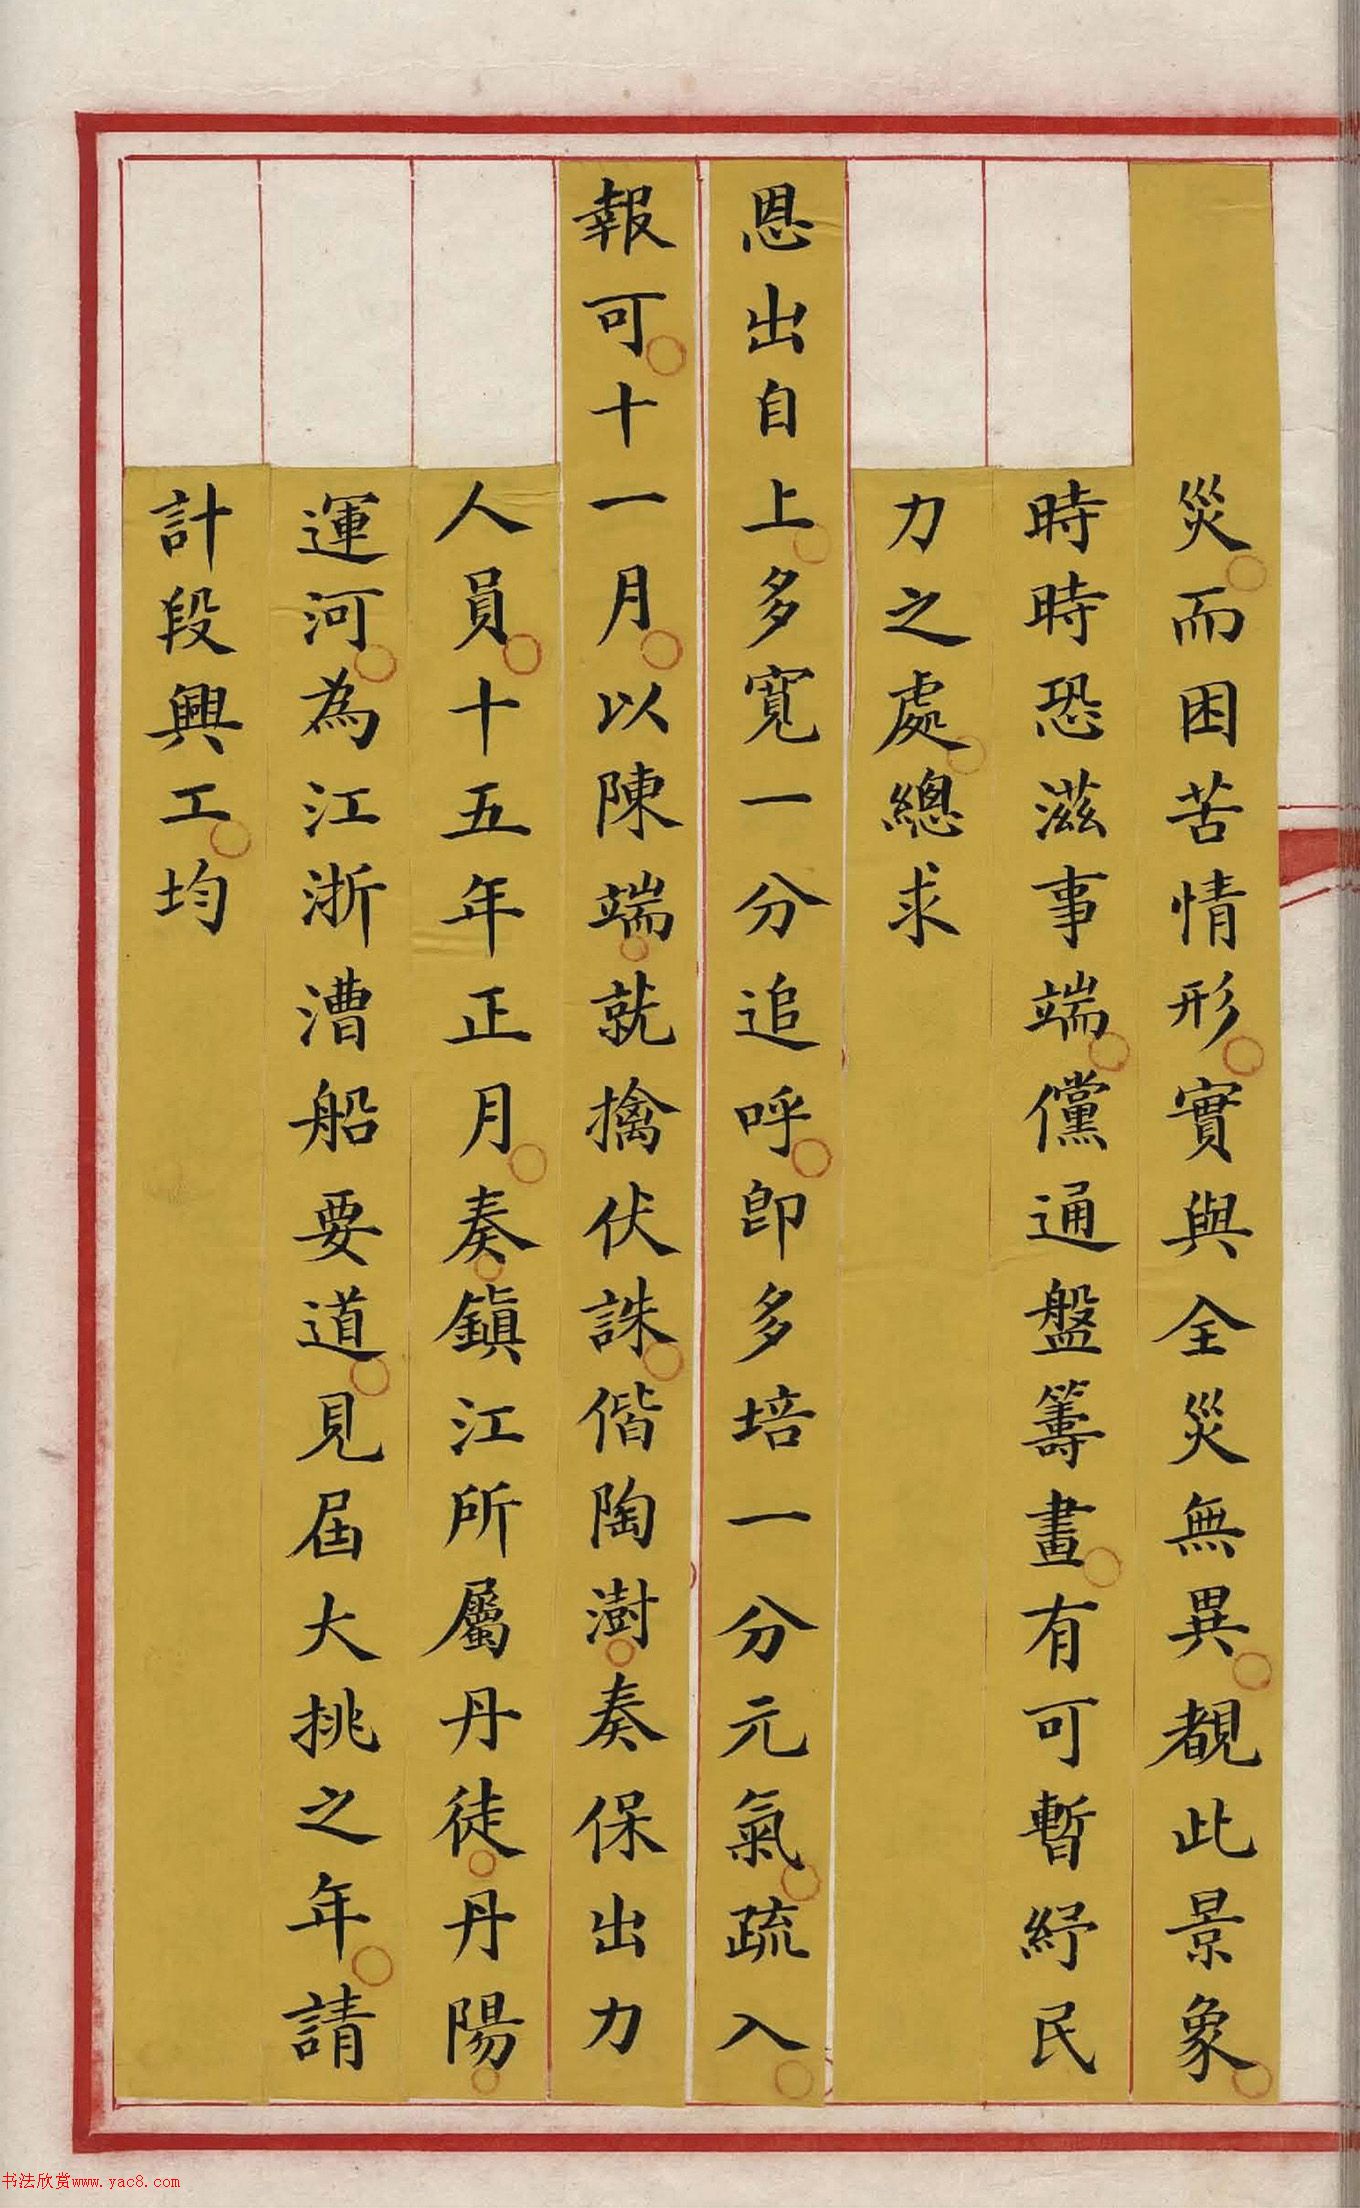 災而困苦情形實與全災無異覩此景象
時時恐滋事端儻通盤籌畫有可暫紓民
力之處總求
恩出自上多寬一分追呼即多培一分元氣疏入
報可十一月以陳端就擒伏誅偕陶澍奏保出力
人員十五年正月奏鎮江所屬丹徒丹陽
運河為江浙漕船要道見屆大挑之年請
計段興工均
书法欣赏www.yac8.com